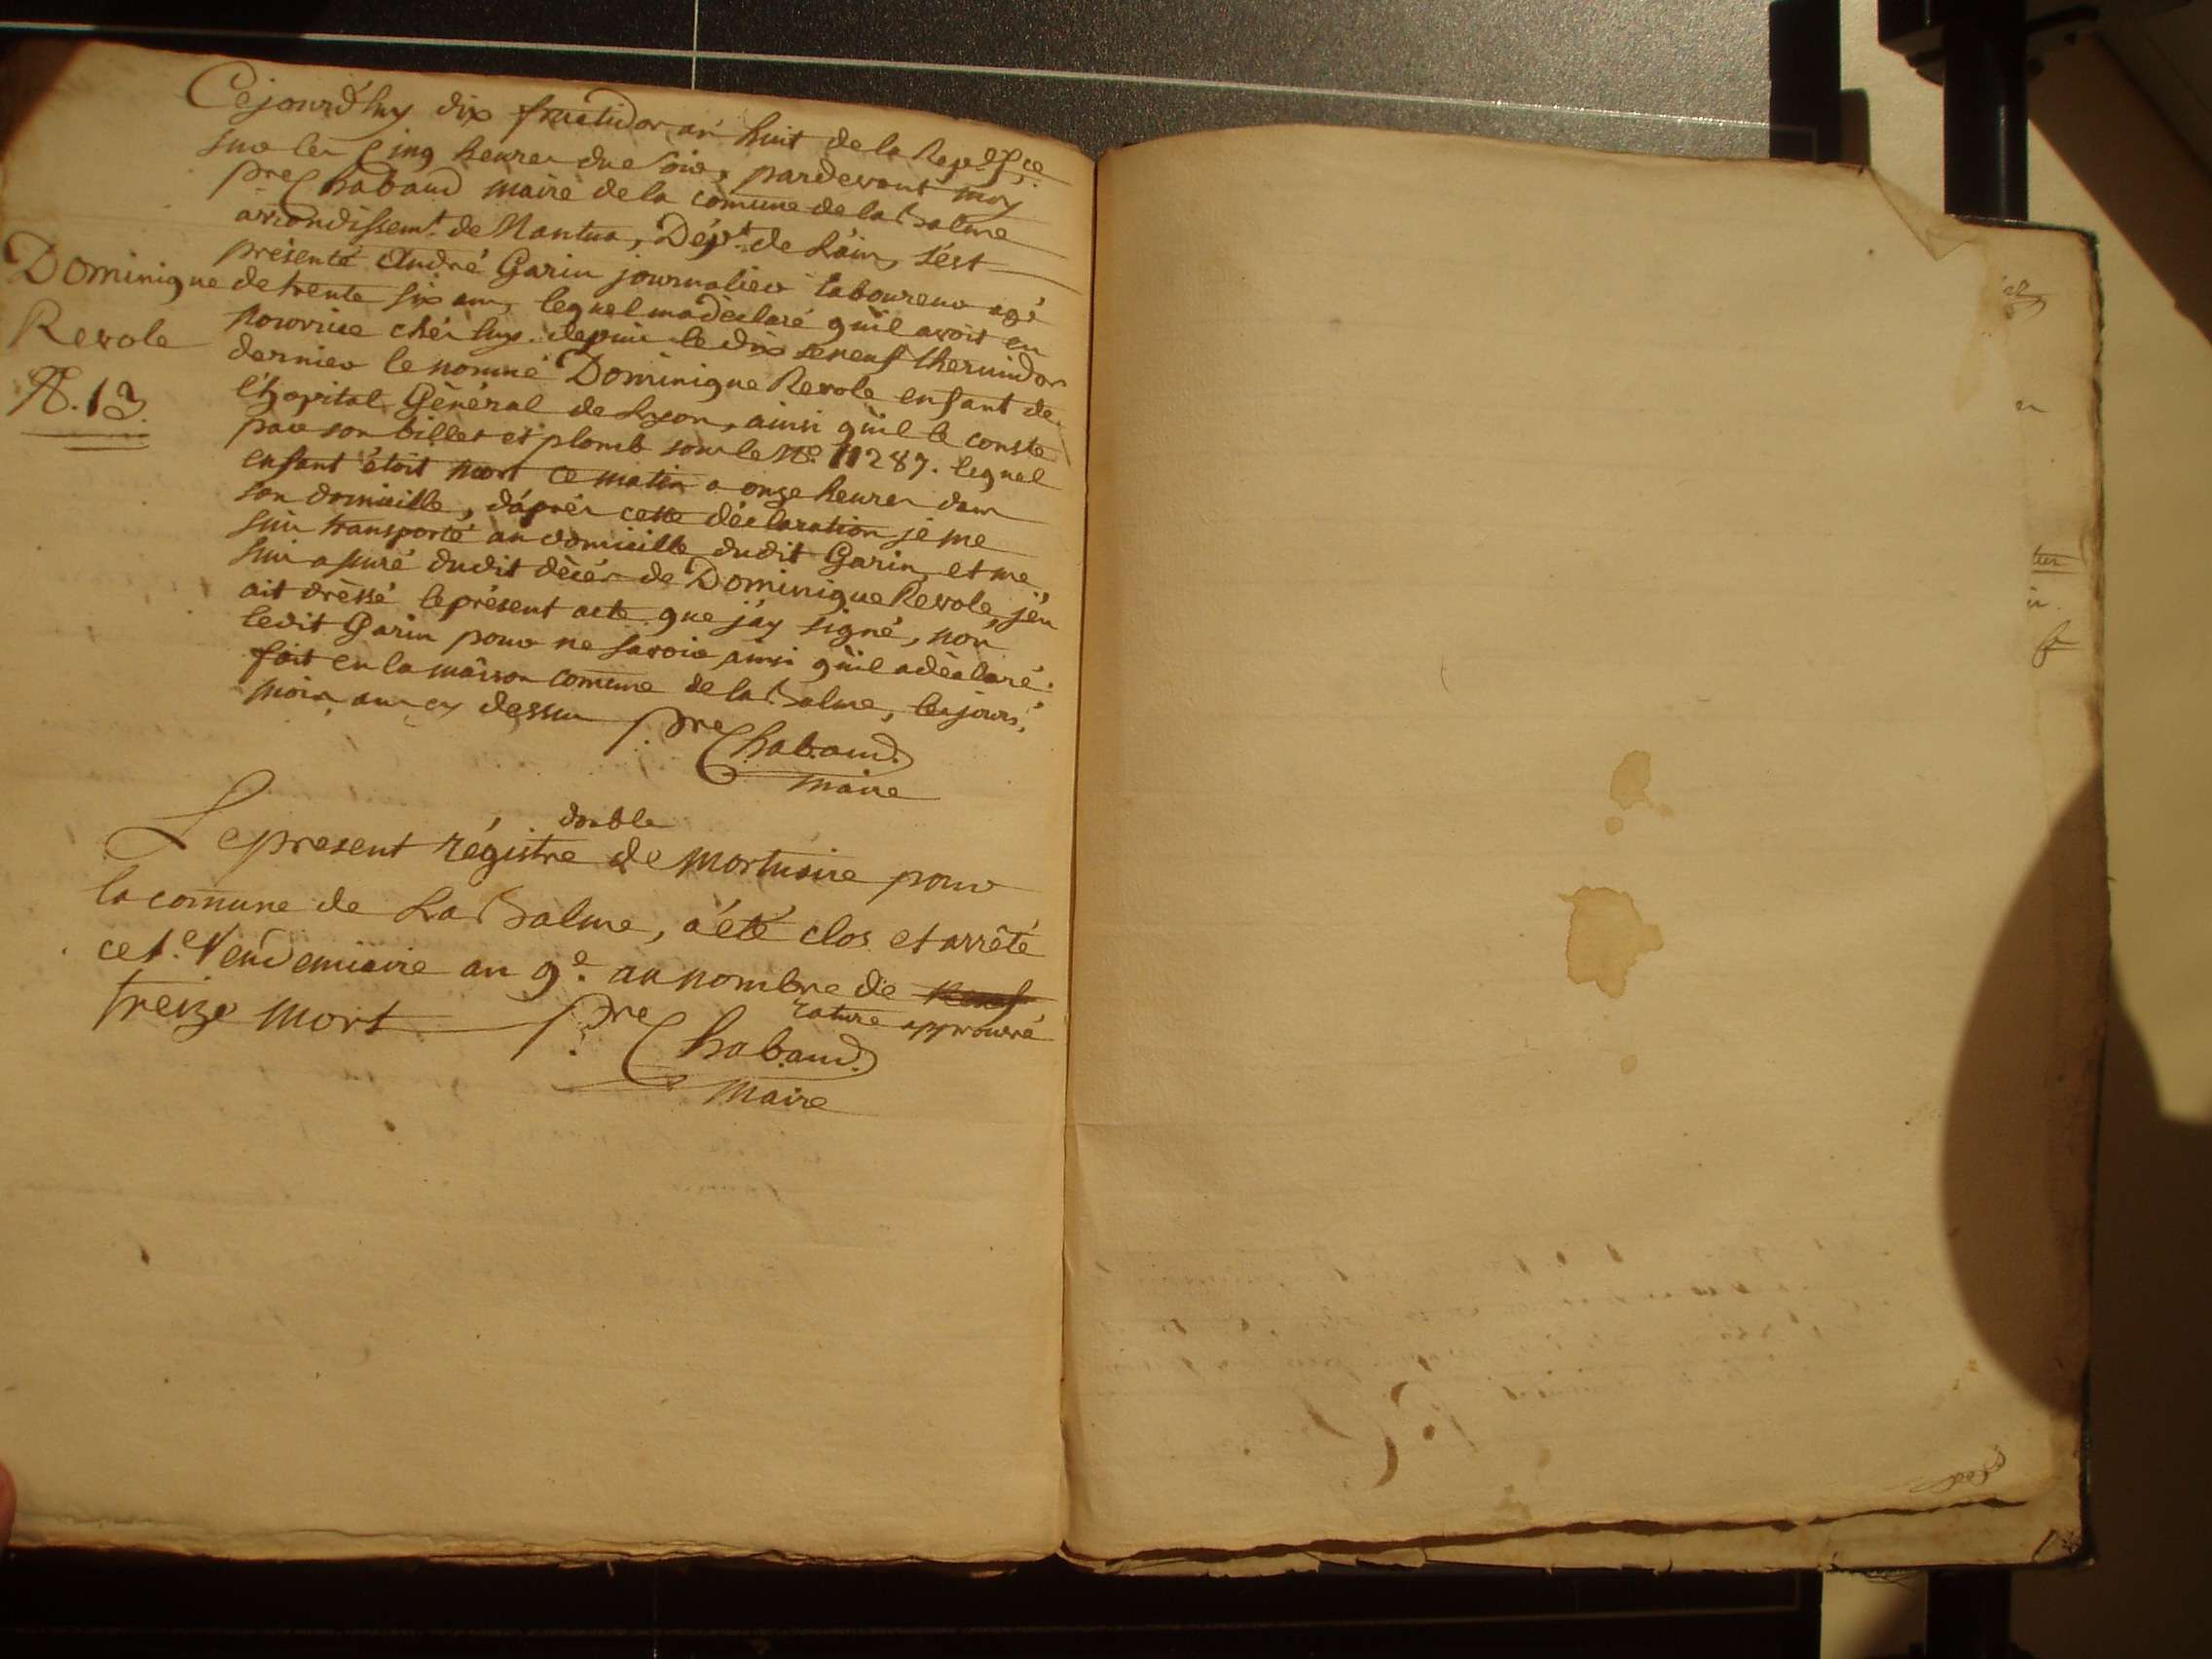 Cejourd'huy dix fructidor an huit de la Rep. fçe
sur les Cinq heures du soir, pardevant moy
pre Chabaud maire de la comune de la Balme
arrondissemt. de Nantua, Dépt. de L'ain, s'est
présenté André Garin journalier laboureur agé
Dominique
Revole
N. 13.
de trente six ans, lequel m'a déclaré qu'il avoit en
nourrice chés luy depuis le dix seneuf thermidor
dernier le nommé Dominique Revole enfant de
l'hopital Général de Lyon, ainsi qu'il le conste
par son billet et plomb sous le No. 11287. lequel
enfant étoit mort ce matin a onze heures dans
son domicille, d'après cette déclaration je me
suis transporté au domicille dudit Garin, et me
suis assuré dudit décés de Dominique Revole, j'en
ait dréssé le présent acte que j'ay signé, non
ledit Garin pour ne savoir ainsi qu'il a déclaré.
fait en la maison comune de la Balme, les jours,
mois, an cy dessus pre Chabaud
maire
double
Le present régistre de mortuaire pour
la comune de La Balme, a été clos et arrêté
ce 1.e Vendemiaire an 9e. au nombre de neuf
treize mort rature approuvé
pre Chabaud
Maire